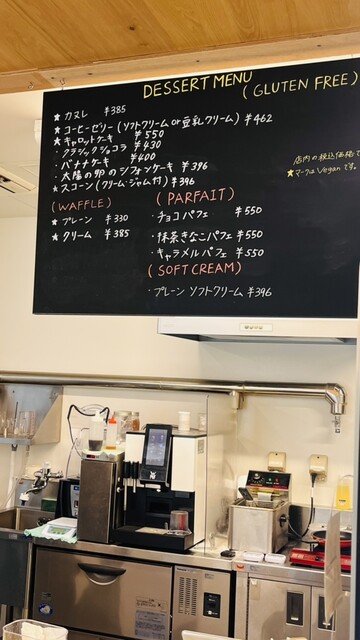 DESSERT MENU
(GLUTEN FREE)
★ カヌレ ¥385
★ コーヒーゼリー (ソフトクリーム or 豆乳クリーム) ¥462
★ キャロットケーキ ¥550
・クラシックショコラ ¥430
・バナナケーキ ¥400
・太陽の卵のシフォンケーキ ¥396
★ スコーン (クリーム・ジャム付) ¥396
店内の税込価格で
★マークはVeganです。
(WAFFLE)
★ プレーン ¥330
★ クリーム ¥385
(PARFAIT)
・チョコパフェ ¥550
・抹茶きなこパフェ ¥550
・キャラメルパフェ ¥550
(SOFT CREAM)
・プレーン ソフトクリーム ¥396
WMF